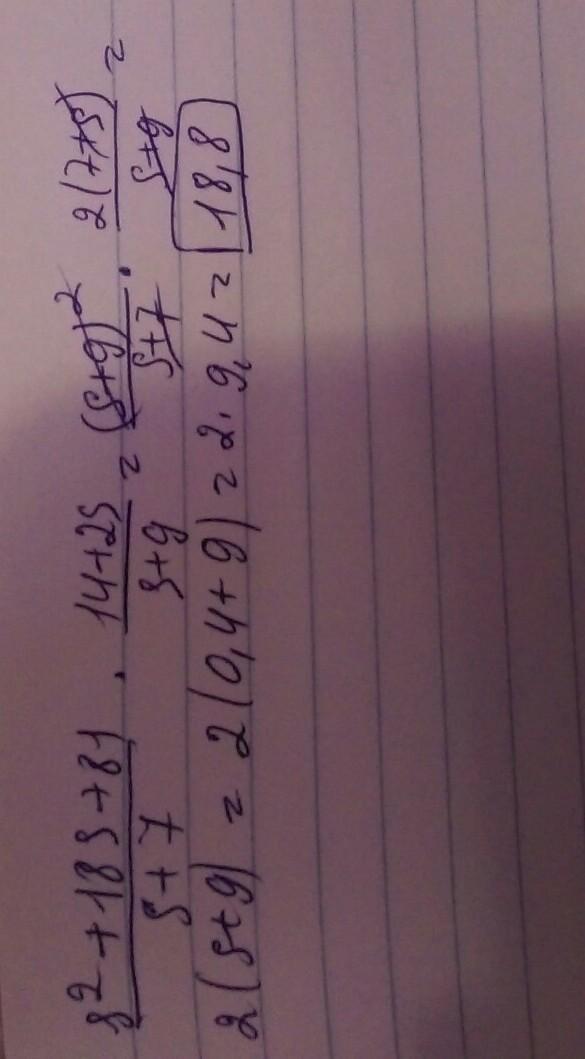 s² + 18s + 81 / s + 7 · 14 + 2s / s + 9 = (s + 9)² / s + 7 · 2(7 + s) / s + 9 =
2(s + 9) = 2(0,4 + 9) = 2 · 9,4 = 18,8